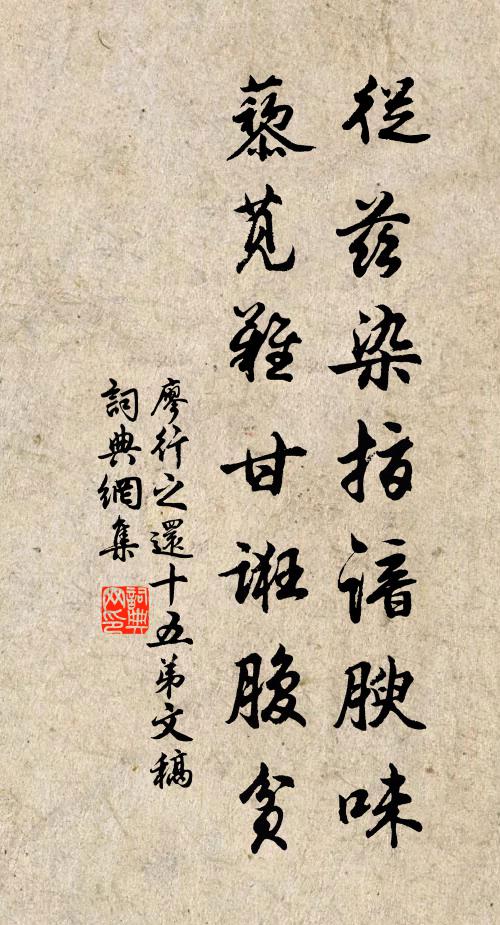 從茲染指諳腴味
藜莧難甘誑腹貧
廖行之還十五弟文稿
詞典網集
詞典網印